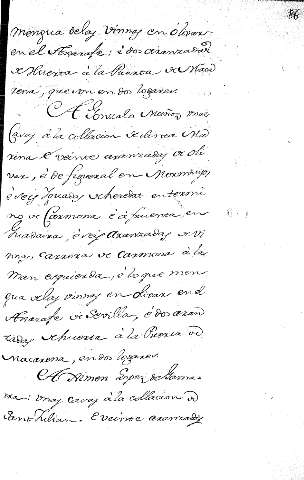 86
mengua de las vinnas en olivar
en el Axarafe: è dos aranzadas
de Huerta à la Puerta de Maca
rena, que son en dos logares
A Gonzalo Muñoz unas
Casas à la collacion de Santa Ma
rina è veinte aranzadas de oli
var, è de figueral en
è seis Yugadas de heredat en termi
no de Carmona è à fuenca, en
Guadaira, è seis aranzadas de vi
nnas, carrera de Carmona à la
man esquierda, è lo que men
gua de las vinnas en olivar en el
Axarafe de Sevilla, è dos aran
zadas de huerta à la Puerta de
Macarena, en dos logares
A Ximon Lopez de
unas casas à la collacion de
Sant Julian. è veinte aranzadas